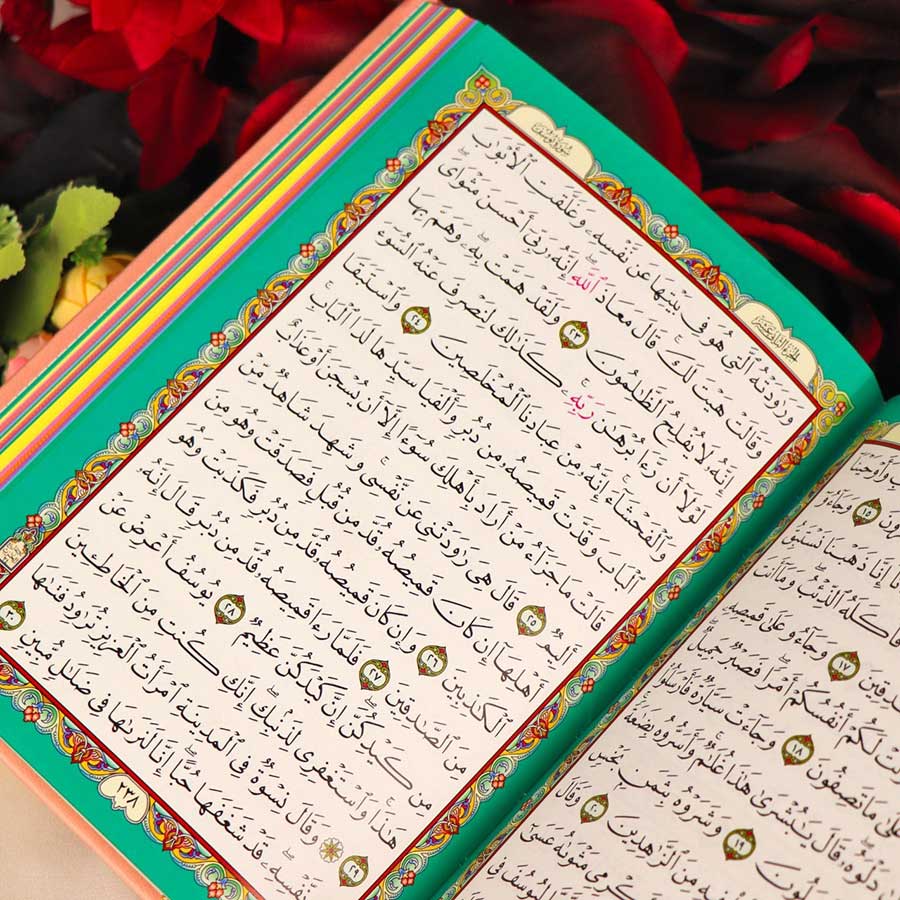 سورة يوسف
الجزء الثاني عشر
وَرَٰوَدَتْهُ ٱلَّتِى هُوَ فِى بَيْتِهَا عَن نَّفْسِهِۦ وَغَلَّقَتِ ٱلْأَبْوَٰبَ
وَقَالَتْ هَيْتَ لَكَ ۚ قَالَ مَعَاذَ ٱللَّهِ ۖ إِنَّهُۥ رَبِّىٓ أَحْسَنَ مَثْوَاىَ ۖ
إِنَّهُۥ لَا يُفْلِحُ ٱلظَّٰلِمُونَ ٢٣ وَلَقَدْ هَمَّتْ بِهِۦ ۖ وَهَمَّ بِهَا
لَوْلَآ أَن رَّءَا بُرْهَٰنَ رَبِّهِۦ ۚ كَذَٰلِكَ لِنَصْرِفَ عَنْهُ ٱلسُّوٓءَ
وَٱلْفَحْشَآءَ ۚ إِنَّهُۥ مِنْ عِبَادِنَا ٱلْمُخْلَصِينَ ٢٤ وَٱسْتَبَقَا
ٱلْبَابَ وَقَدَّتْ قَمِيصَهُۥ مِن دُبُرٍ وَأَلْفَيَا سَيِّدَهَا لَدَا ٱلْبَابِ ۚ
قَالَتْ مَا جَزَآءُ مَنْ أَرَادَ بِأَهْلِكَ سُوٓءًا إِلَّآ أَن يُسْجَنَ أَوْ عَذَابٌ
أَلِيمٌ ٢٥ قَالَ هِىَ رَٰوَدَتْنِى عَن نَّفْسِى ۚ وَشَهِدَ شَاهِدٌ مِّنْ
أَهْلِهَآ إِن كَانَ قَمِيصُهُۥ قُدَّ مِن قُبُلٍ فَصَدَقَتْ وَهُوَ مِنَ
ٱلْكَٰذِبِينَ ٢٦ وَإِن كَانَ قَمِيصُهُۥ قُدَّ مِن دُبُرٍ فَكَذَبَتْ وَهُوَ
مِنَ ٱلصَّٰدِقِينَ ٢٧ فَلَمَّا رَءَا قَمِيصَهُۥ قُدَّ مِن دُبُرٍ قَالَ إِنَّهُۥ
مِن كَيْدِكُنَّ ۖ إِنَّ كَيْدَكُنَّ عَظِيمٌ ٢٨ يُوسُفُ أَعْرِضْ عَنْ
هَٰذَا ۚ وَٱسْتَغْفِرِى لِذَنۢبِكِ ۖ إِنَّكِ كُنتِ مِنَ ٱلْخَاطِـِٔينَ
٢٩ وَقَالَ نِسْوَةٌ فِى ٱلْمَدِينَةِ ٱمْرَأَتُ ٱلْعَزِيزِ تُرَٰوِدُ فَتَىٰهَا
عَن نَّفْسِهِۦ ۖ قَدْ شَغَفَهَا حُبًّا ۖ إِنَّا لَنَرَىٰهَا فِى ضَلَٰلٍ مُّبِينٍ ٣٠
٢٣٨
وَأَوْحَيْنَآ
١٥ وَجَآءُو
إِنَّا ذَهَبْنَا نَسْتَبِقُ
فَأَكَلَهُ ٱلذِّئْبُ ۖ وَمَآ أَنتَ
١٧ وَجَآءُو عَلَىٰ قَمِيصِهِۦ
لَكُمْ أَنفُسُكُمْ أَمْرًا ۖ فَصَبْرٌ جَمِيلٌ ۖ
عَلَىٰ مَا تَصِفُونَ ١٨ وَجَآءَتْ سَيَّارَةٌ فَأَرْسَلُوا۟
دَلْوَهُۥ ۖ قَالَ يَٰبُشْرَىٰ هَٰذَا غُلَٰمٌ ۚ وَأَسَرُّوهُ بِضَٰعَةً ۚ
١٩ وَشَرَوْهُ بِثَمَنٍۭ بَخْسٍ
فِيهِ مِنَ ٱلزَّٰهِدِينَ ٢٠ وَقَالَ
مَثْوَىٰهُ عَسَىٰٓ
لِيُوسُفَ فِى